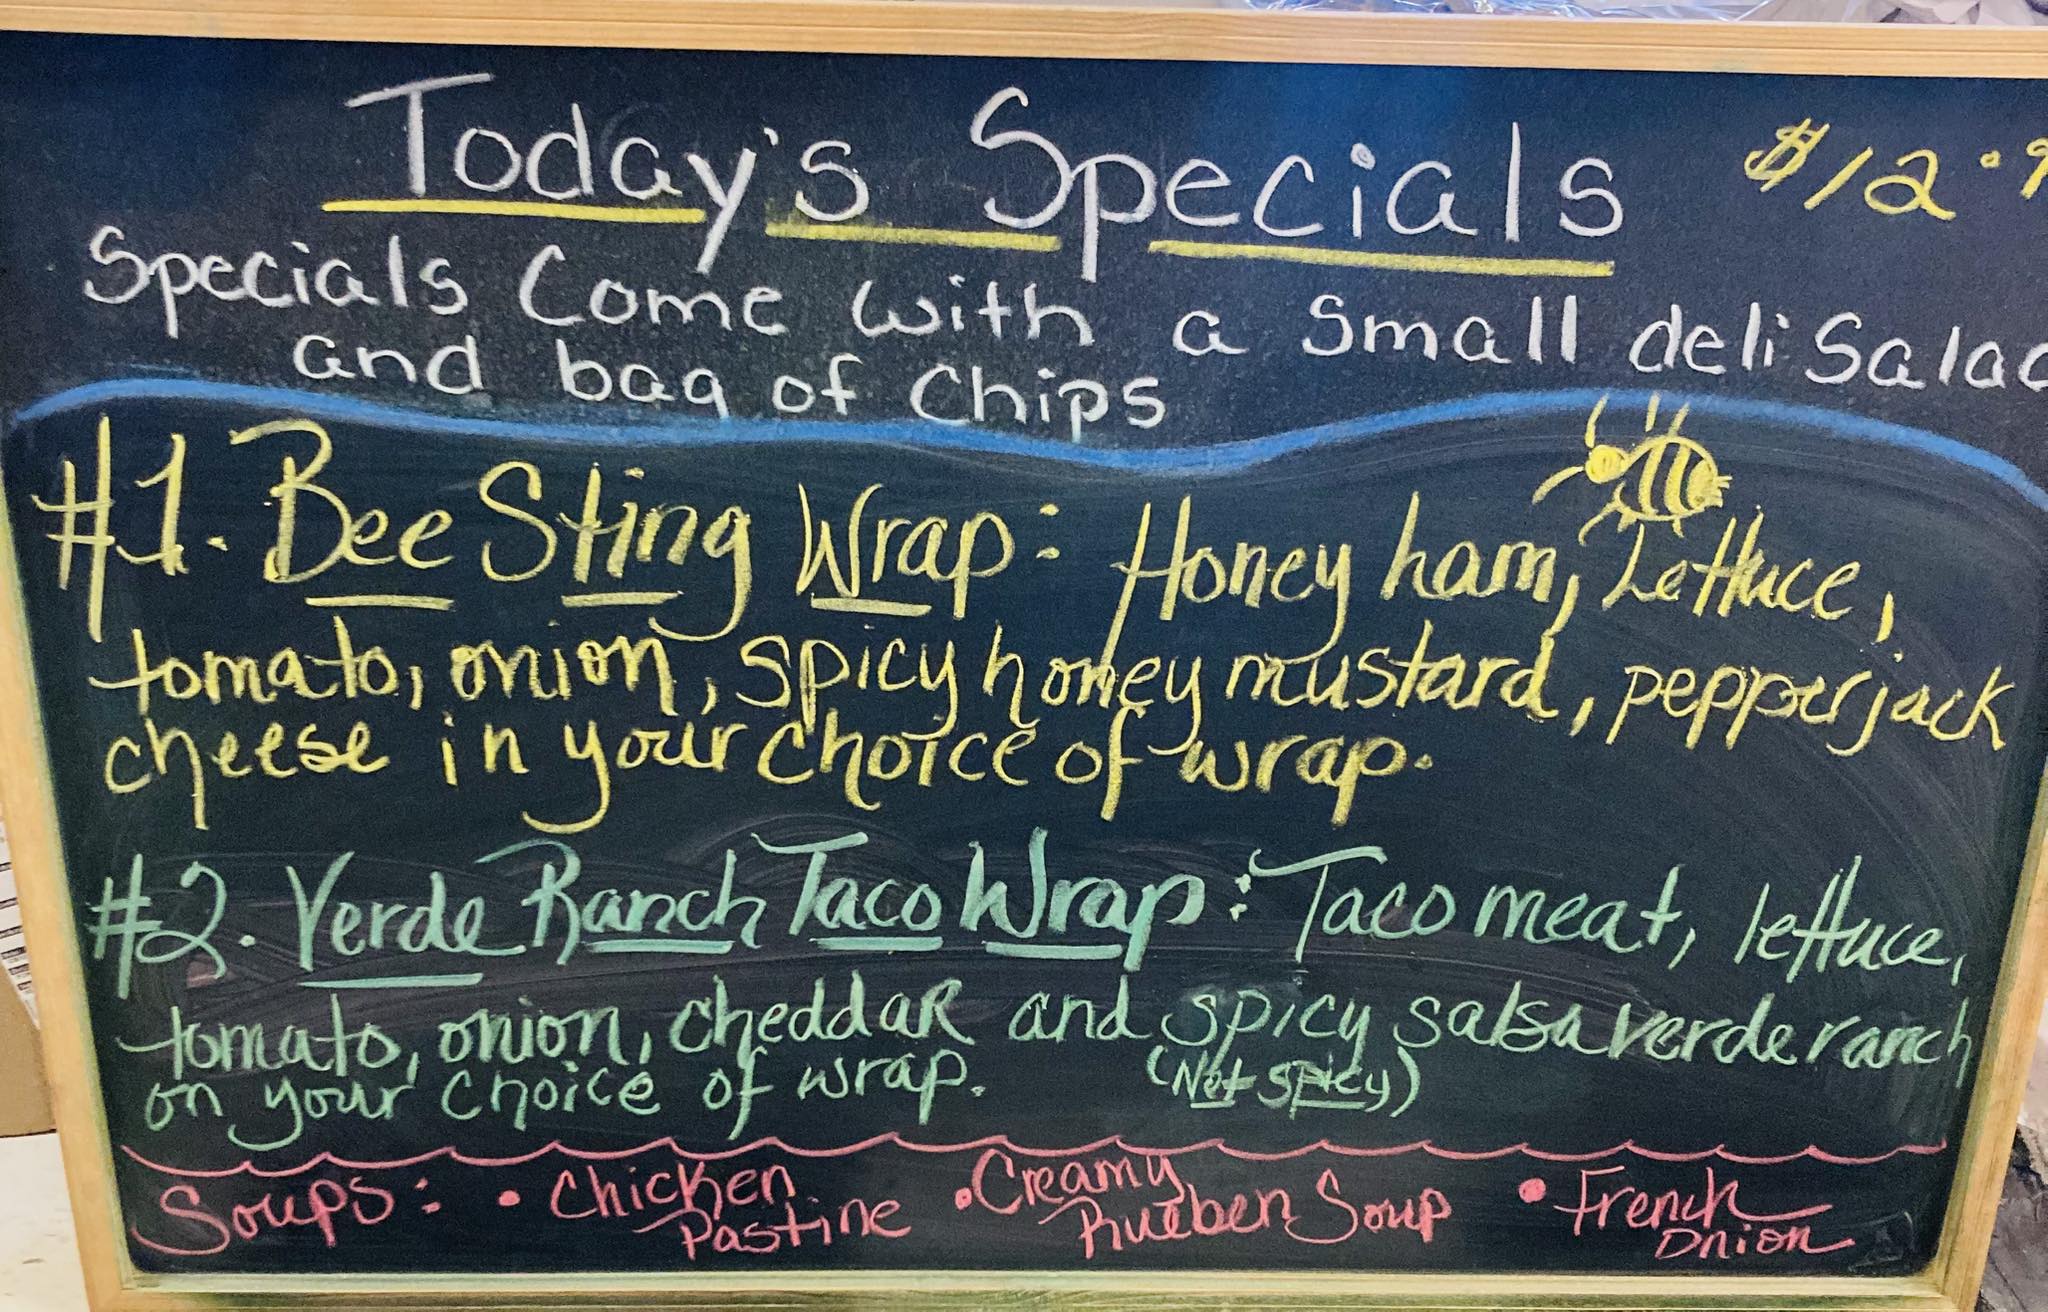 Today's Specials $12.9
Specials Come with a Small deli Salad
and bag of Chips
#1. Bee Sting Wrap: Honey ham, Lettuce,
tomato, onion, spicy honey mustard, pepperjack
cheese in your choice of wrap.
#2. Verde Ranch Taco Wrap: Taco meat, lettuce,
tomato, onion, cheddar and spicy salsa verde ranch
on your choice of wrap. (Not spicy)
Soups: • Chicken Pastine • Creamy Rueben Soup • French Onion